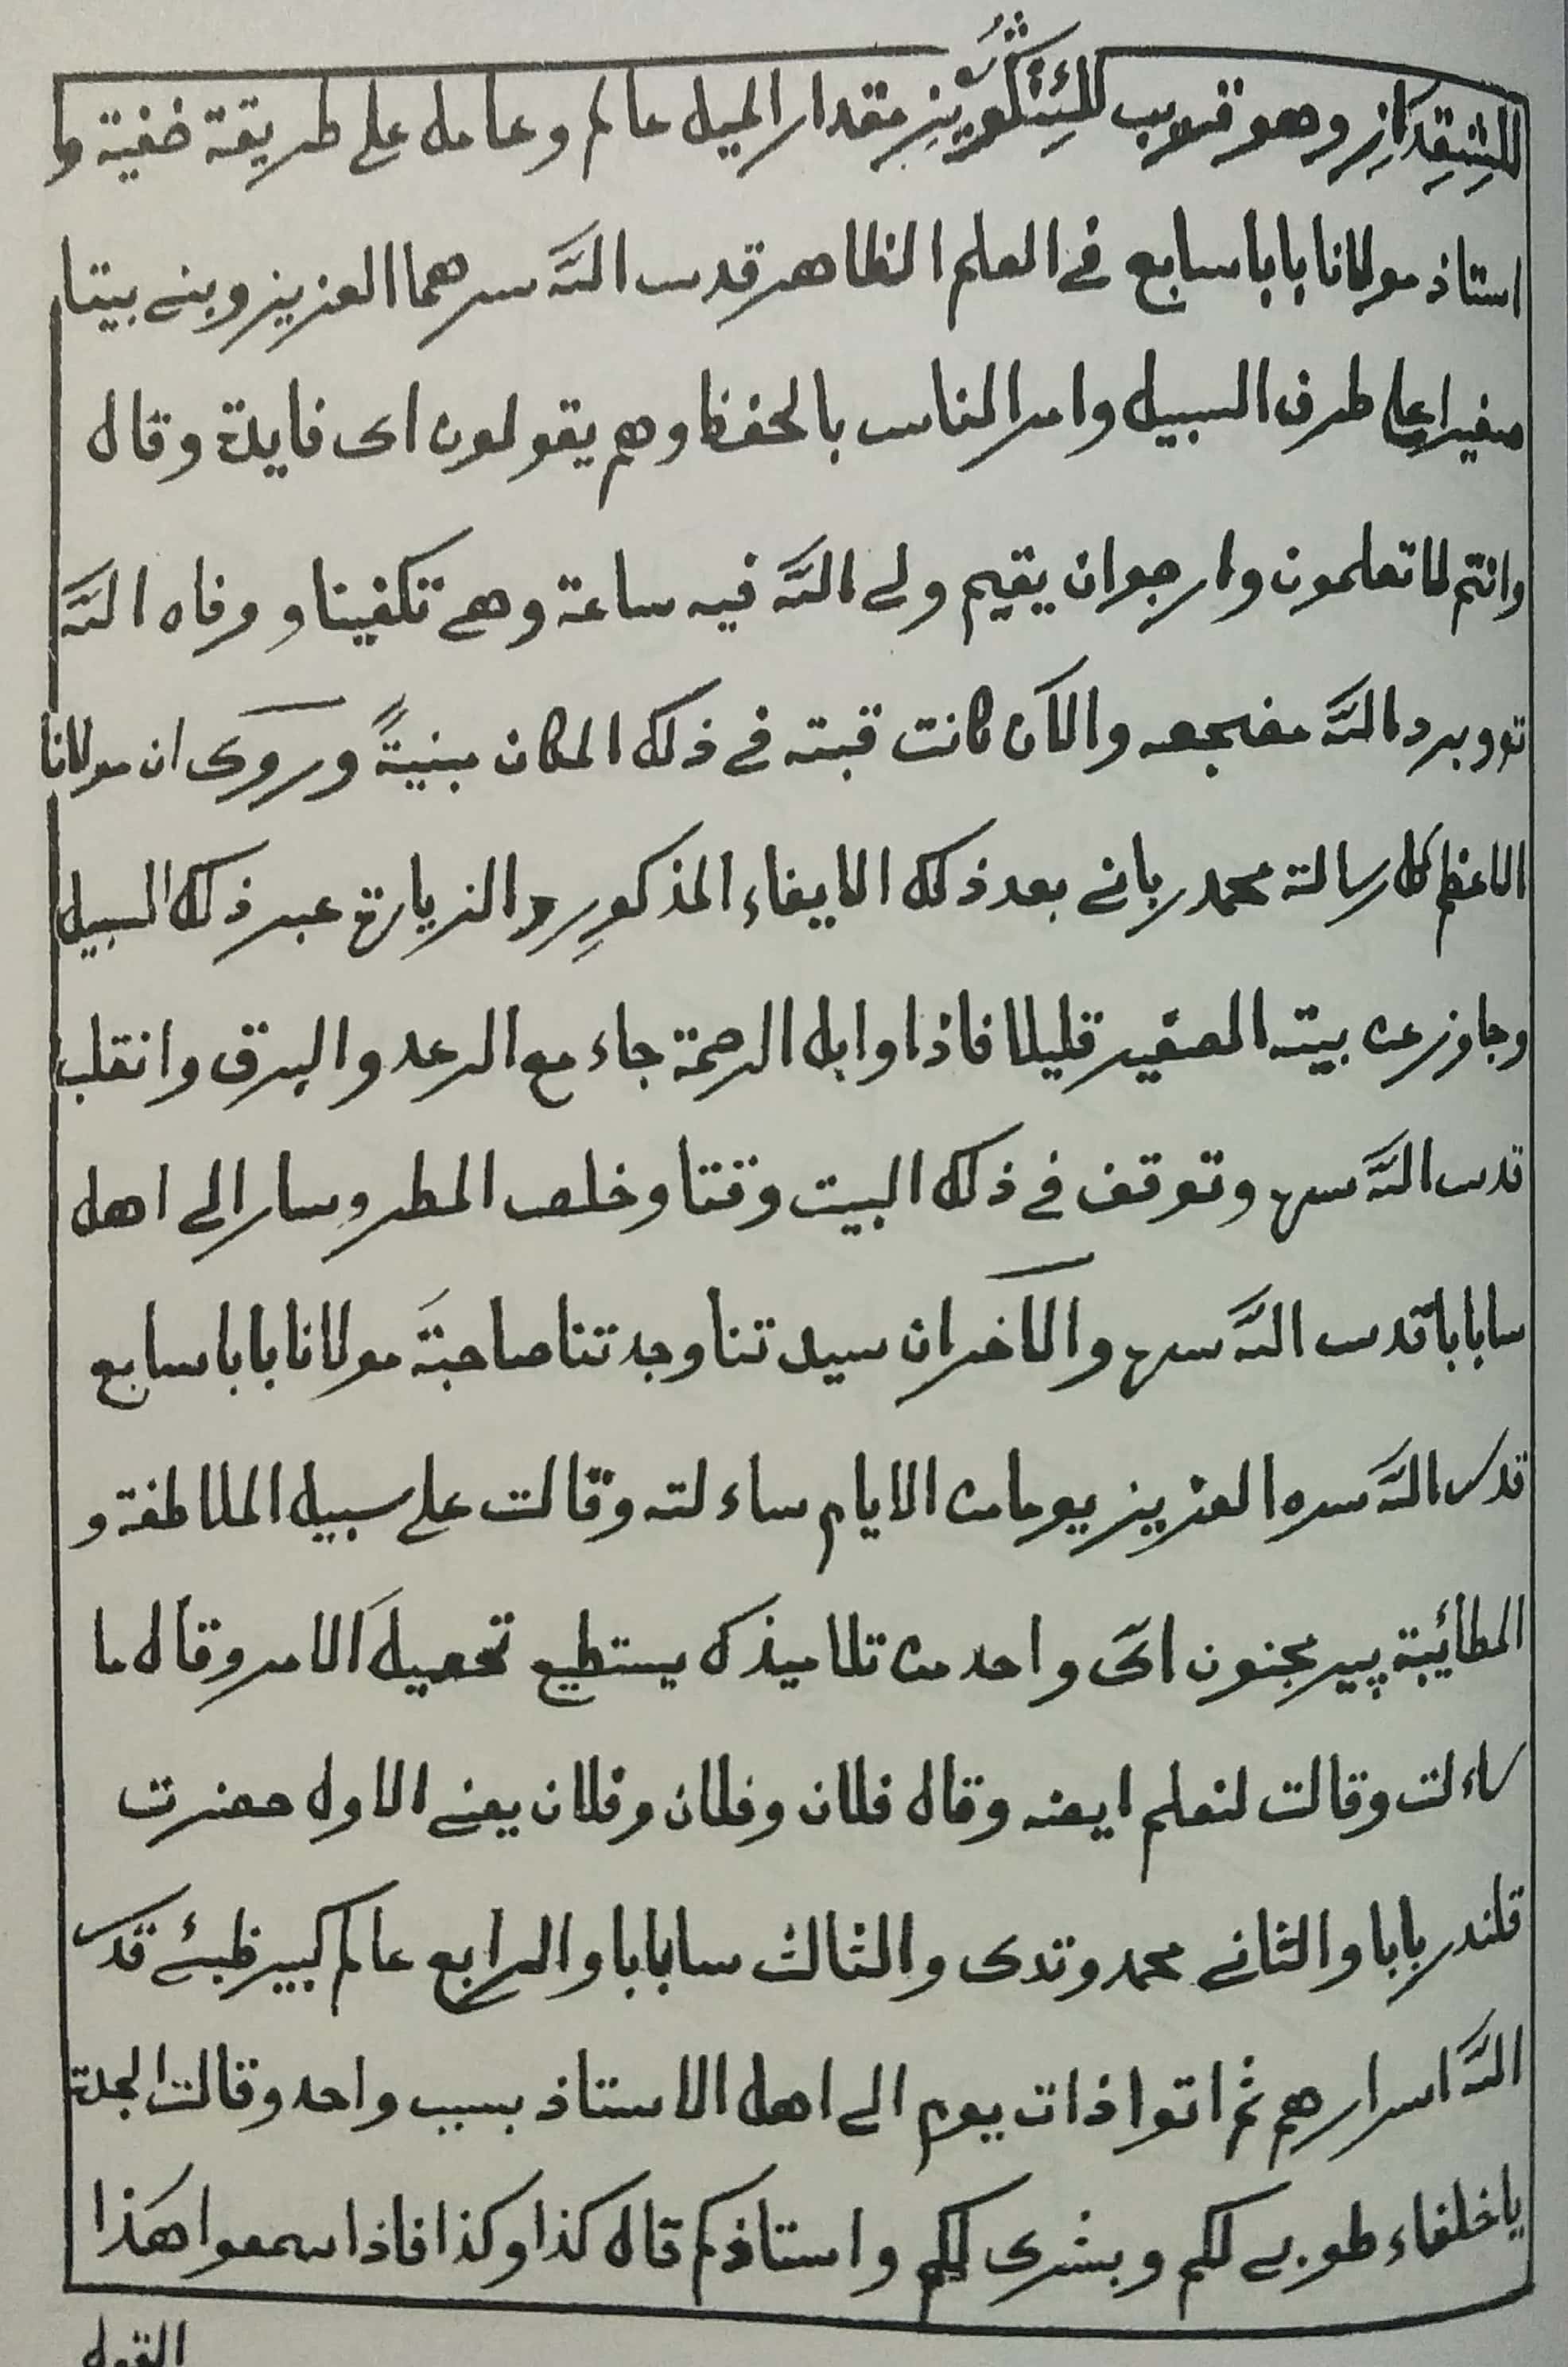 وهو قريب مقدار الميل عالم وعامل على طريقة خفية و
استاذ مولانا بابا سابع في العلم الظاهر قدس الله سرهما العزيز وبنى بيتا
صغيرا على طرف السبيل وامر الناس بالحفظ وهم يقولون اى فايدة وقال
وانتم لا تعلمون وارجو ان يقيم ولي الله فيه ساعة وهي تكفينا و وفاه الله
تو وبرد الله مضجعه والآن كانت قبته في ذلك المكان مبنيةً وروى ان مولانا
الاعظم رسالة محمد رباني بعد ذلك الايفاء المذكورِ والزيارة عبر ذلك السبيل
وجاوز عن بيته الصغير قليلا فاذا وابل الرحمة جاء مع الرعد والبرق وانقلب
قدس الله سره وتوقف في ذلك البيت وقتا وخلص المطر وسار الى اهل
سابابا قدس الله سره والآخر ان سيدتنا وجدتنا صاحبةَ مولانا بابا سابع
قدس الله سره العزيز يوما من الايام ساءلته وقالت على سبيل الملاطفة و
المطائبة پير مجنون اىّ واحد من تلاميذك يستطيع تحصيلَ الامر وقال ما
ساءلت وقالت لنعلم ايضه وقال فلان وفلان وفلان يعني الاول حضرت
قلندر بابا والثاني محمد وتدى والثالث سابابا والرابع عالم كبير قدس
الله اسرارهم ثم اتوا ذات يوم الى اهل الاستاذ بسبب واحد وقالت الجدة
يا خلفاء طوبى لكم وبشرى لكم واستاذكم قال كذا وكذا فاذا سمعوا هَذا
القول